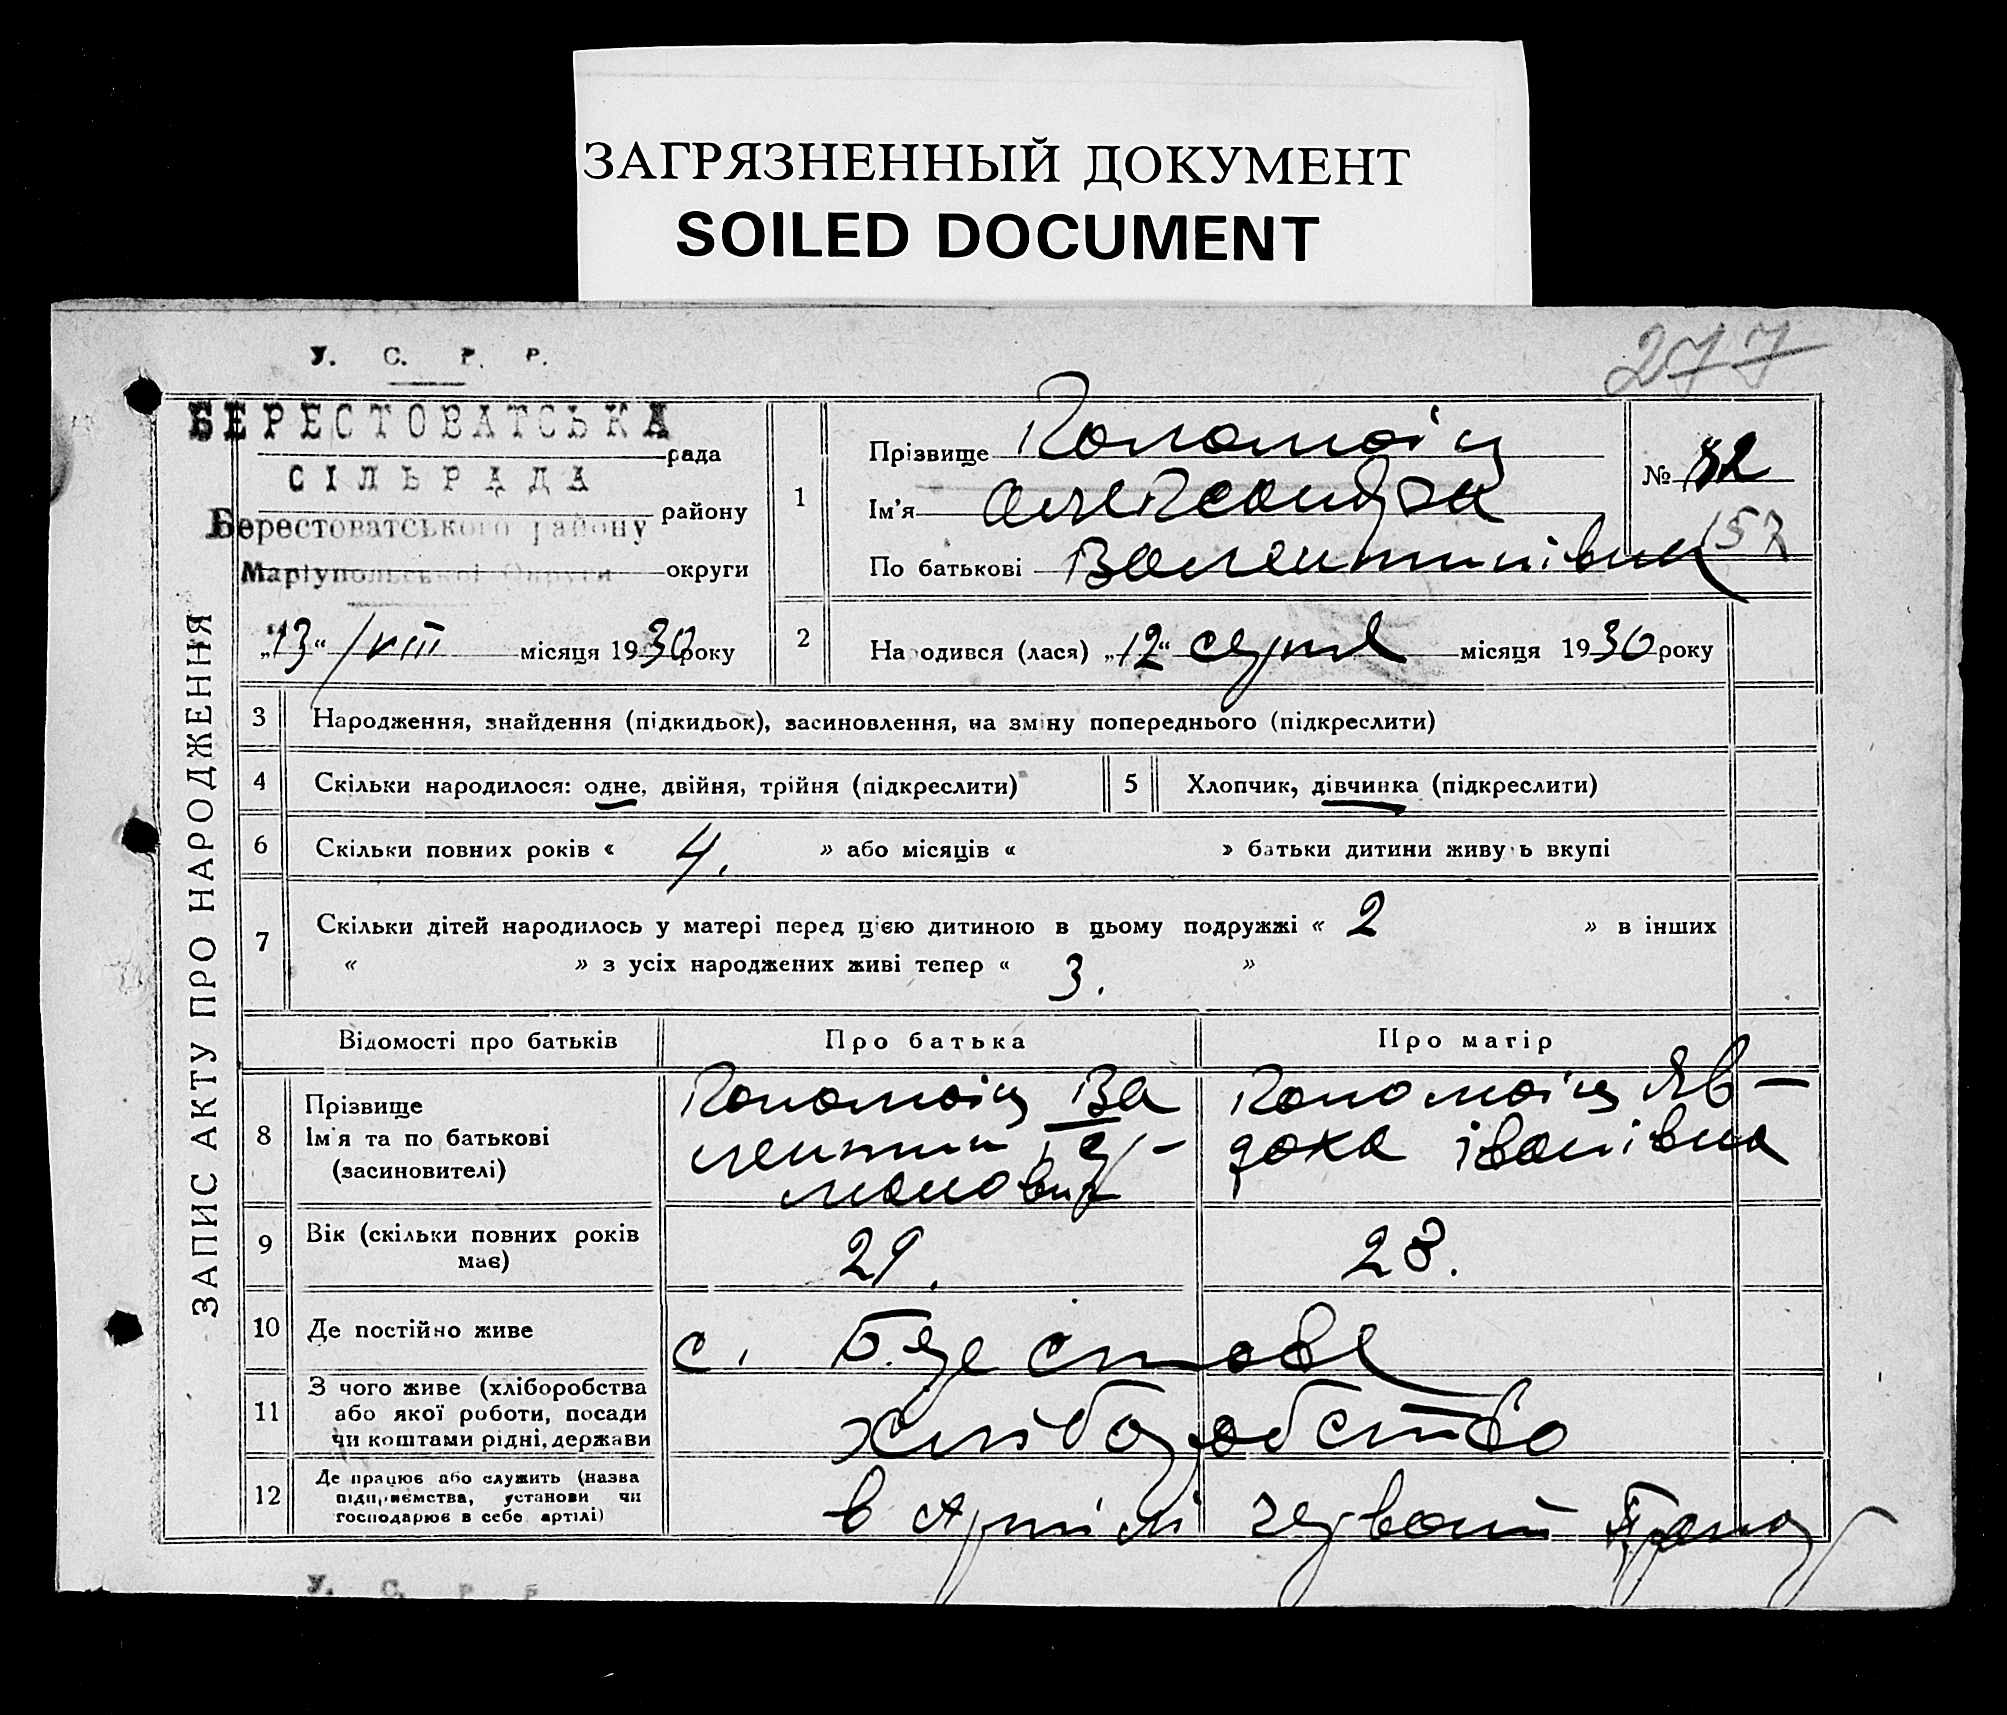 ЗАГРЯЗНЕННЫЙ ДОКУМЕНТ
SOILED DOCUMENT
277
У. С. Р. Р.
ЗАПИС АКТУ ПРО НАРОДЖЕННЯ
БЕРЕСТОВАТСЬКА
рада
СІЛЬРАДА
району
Берестоватського району
Маріупольської Округи округи
„13“ /VIII місяця 1930 року
1
Прізвище Коломоіц
Ім'я Олександра
По батькові Валентинівна
№ 82
157
2
Народився (лася) „12“ серпня місяця 1930 року
3 Народження, знайдення (підкидьок), засиновлення, на зміну попереднього (підкреслити)
4 Скільки народилося: одне, двійня, трійня (підкреслити)
5 Хлопчик, дівчинка (підкреслити)
6 Скільки повних років « 4. » або місяців « » батьки дитини живуть вкупі
7 Скільки дітей народилось у матері перед цією дитиною в цьому подружжі « 2 » в інших
« » з усіх народжених живі тепер « 3. »
Відомості про батьків Про батька Про матір
8
Прізвище
Ім'я та по батькові
(засиновителі)
Коломоіц Ва
лентин
Коломоіц Яв–
доха Іванівна
9 Вік (скільки повних років
має)
29. 28.
10 Де постійно живе с. Берестове
11 З чого живе (хліборобства
або якої роботи, посади
чи коштами рідні, держави
хліборобство
12 Де працює або служить (назва
підприємства, установи чи
господарює в себе артілі)
в Артілі Червоний
У. С. Р. Р.